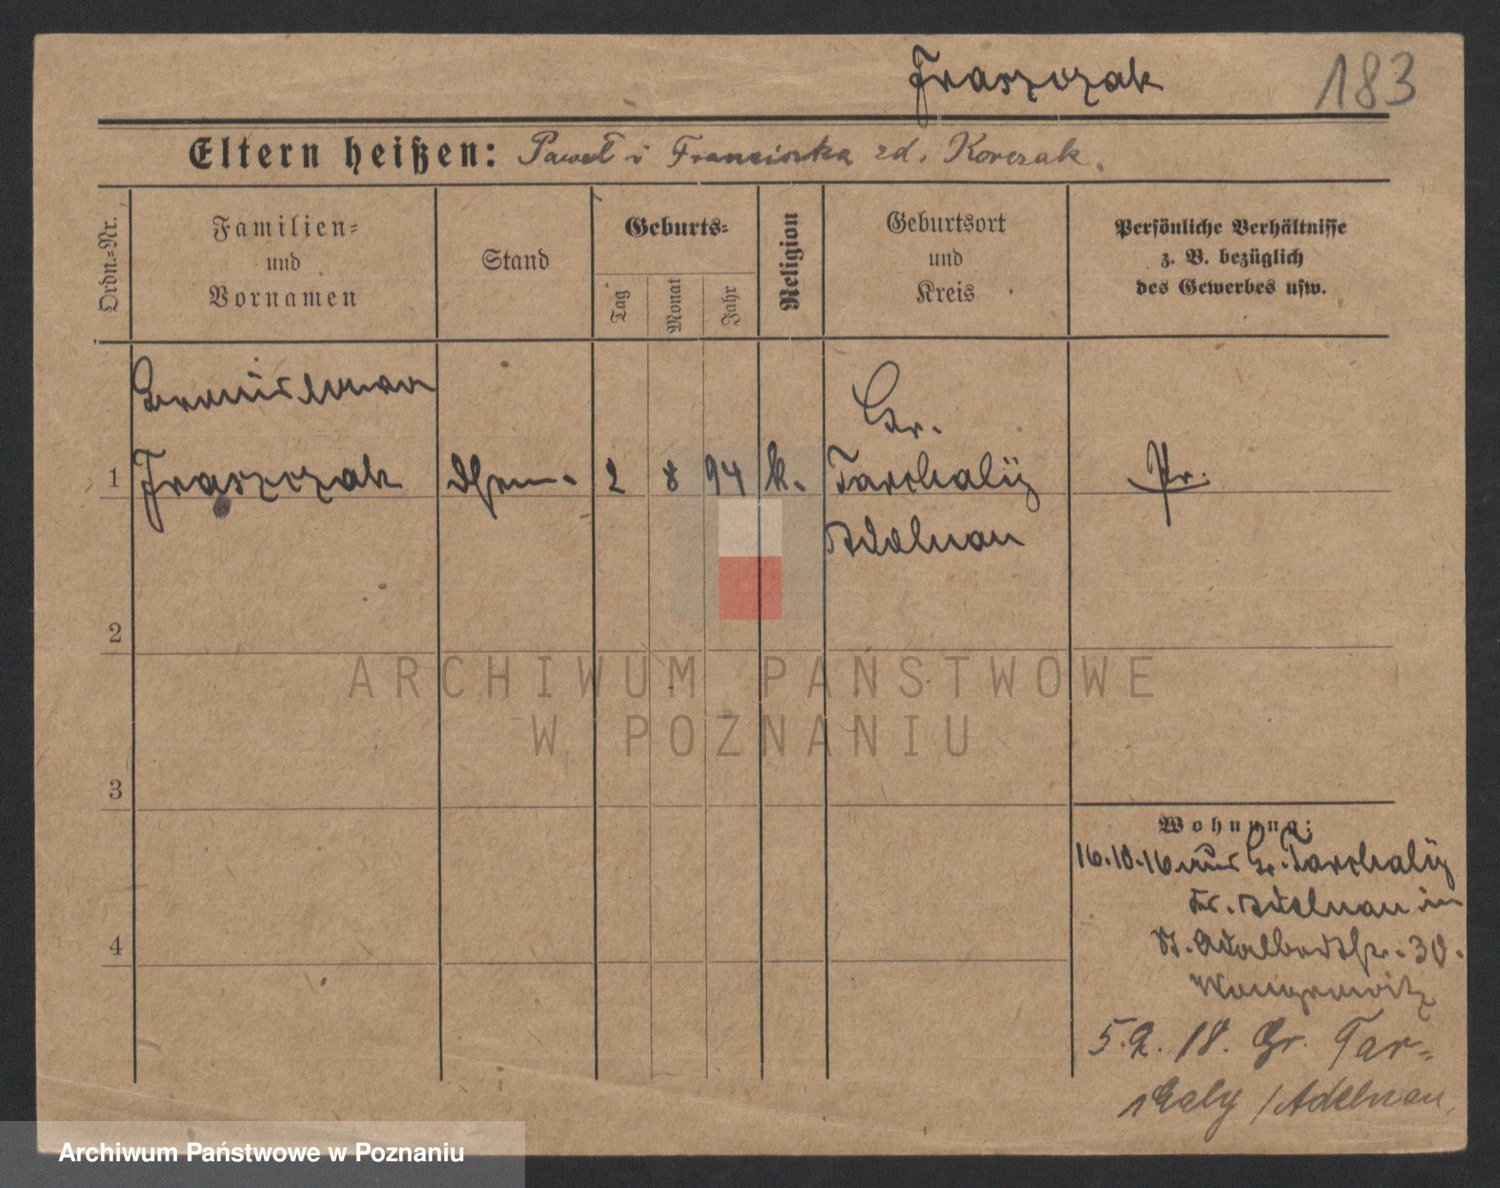 Fraszczak 183
Eltern heißen: Paweł i Franciszka zd. Korczak.
Ordn.-Nr.
Familien-
und
Vornamen
Stand
Geburts-
Tag
Monat
Jahr
Religion
Geburtsort
und
Kreis
Persönliche Verhältnisse
z. B. bezüglich
des Gewerbes usw.
Bronislawa
Gr.
1 Fraszczak 2 8 94 k. Tarchaly Pr.
Adelnau
2
ARCHIWUM PAŃSTWOWE
W POZNANIU
3
Wohnung:
16.10.16 aus Gr. Tarchaly
Kr. Adelnau in
St. Adalbertstr. 30.
Wongrowitz
5.2.18. Gr. Tar-
chaly /Adelnau
4
Archiwum Państwowe w Poznaniu